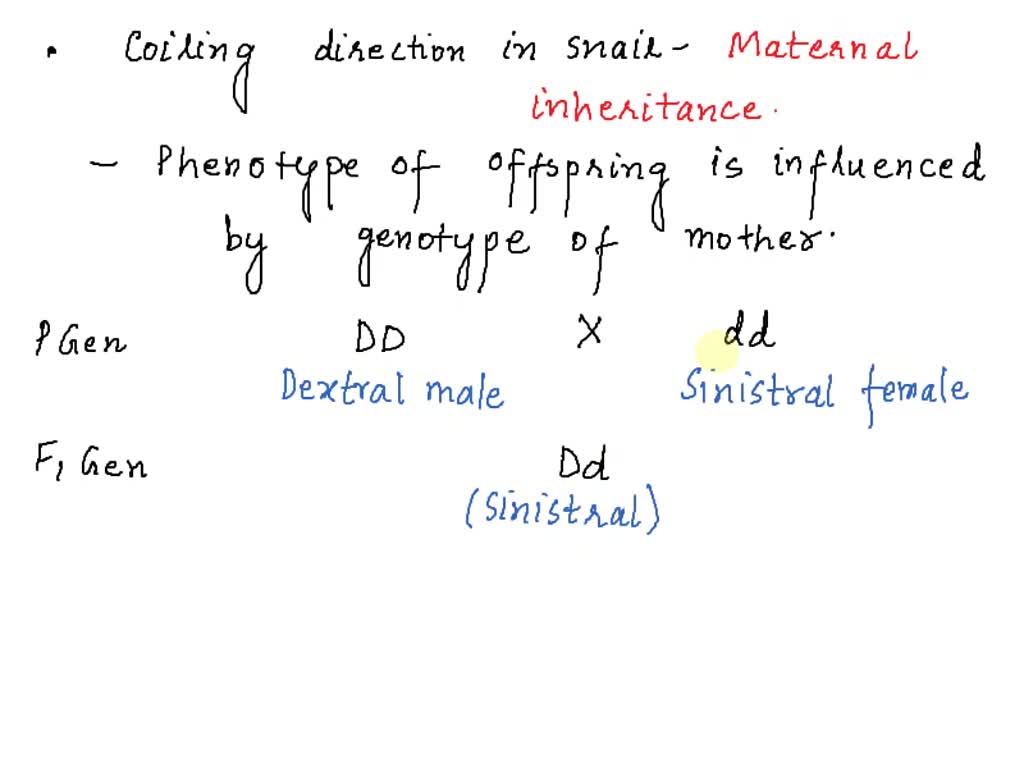 • Coiling direction in snail - Maternal
inheritance.
- Phenotype of offspring is influenced
by genotype of mother.
P Gen DD X dd
Dextral male Sinistral female
F1 Gen Dd
(Sinistral)